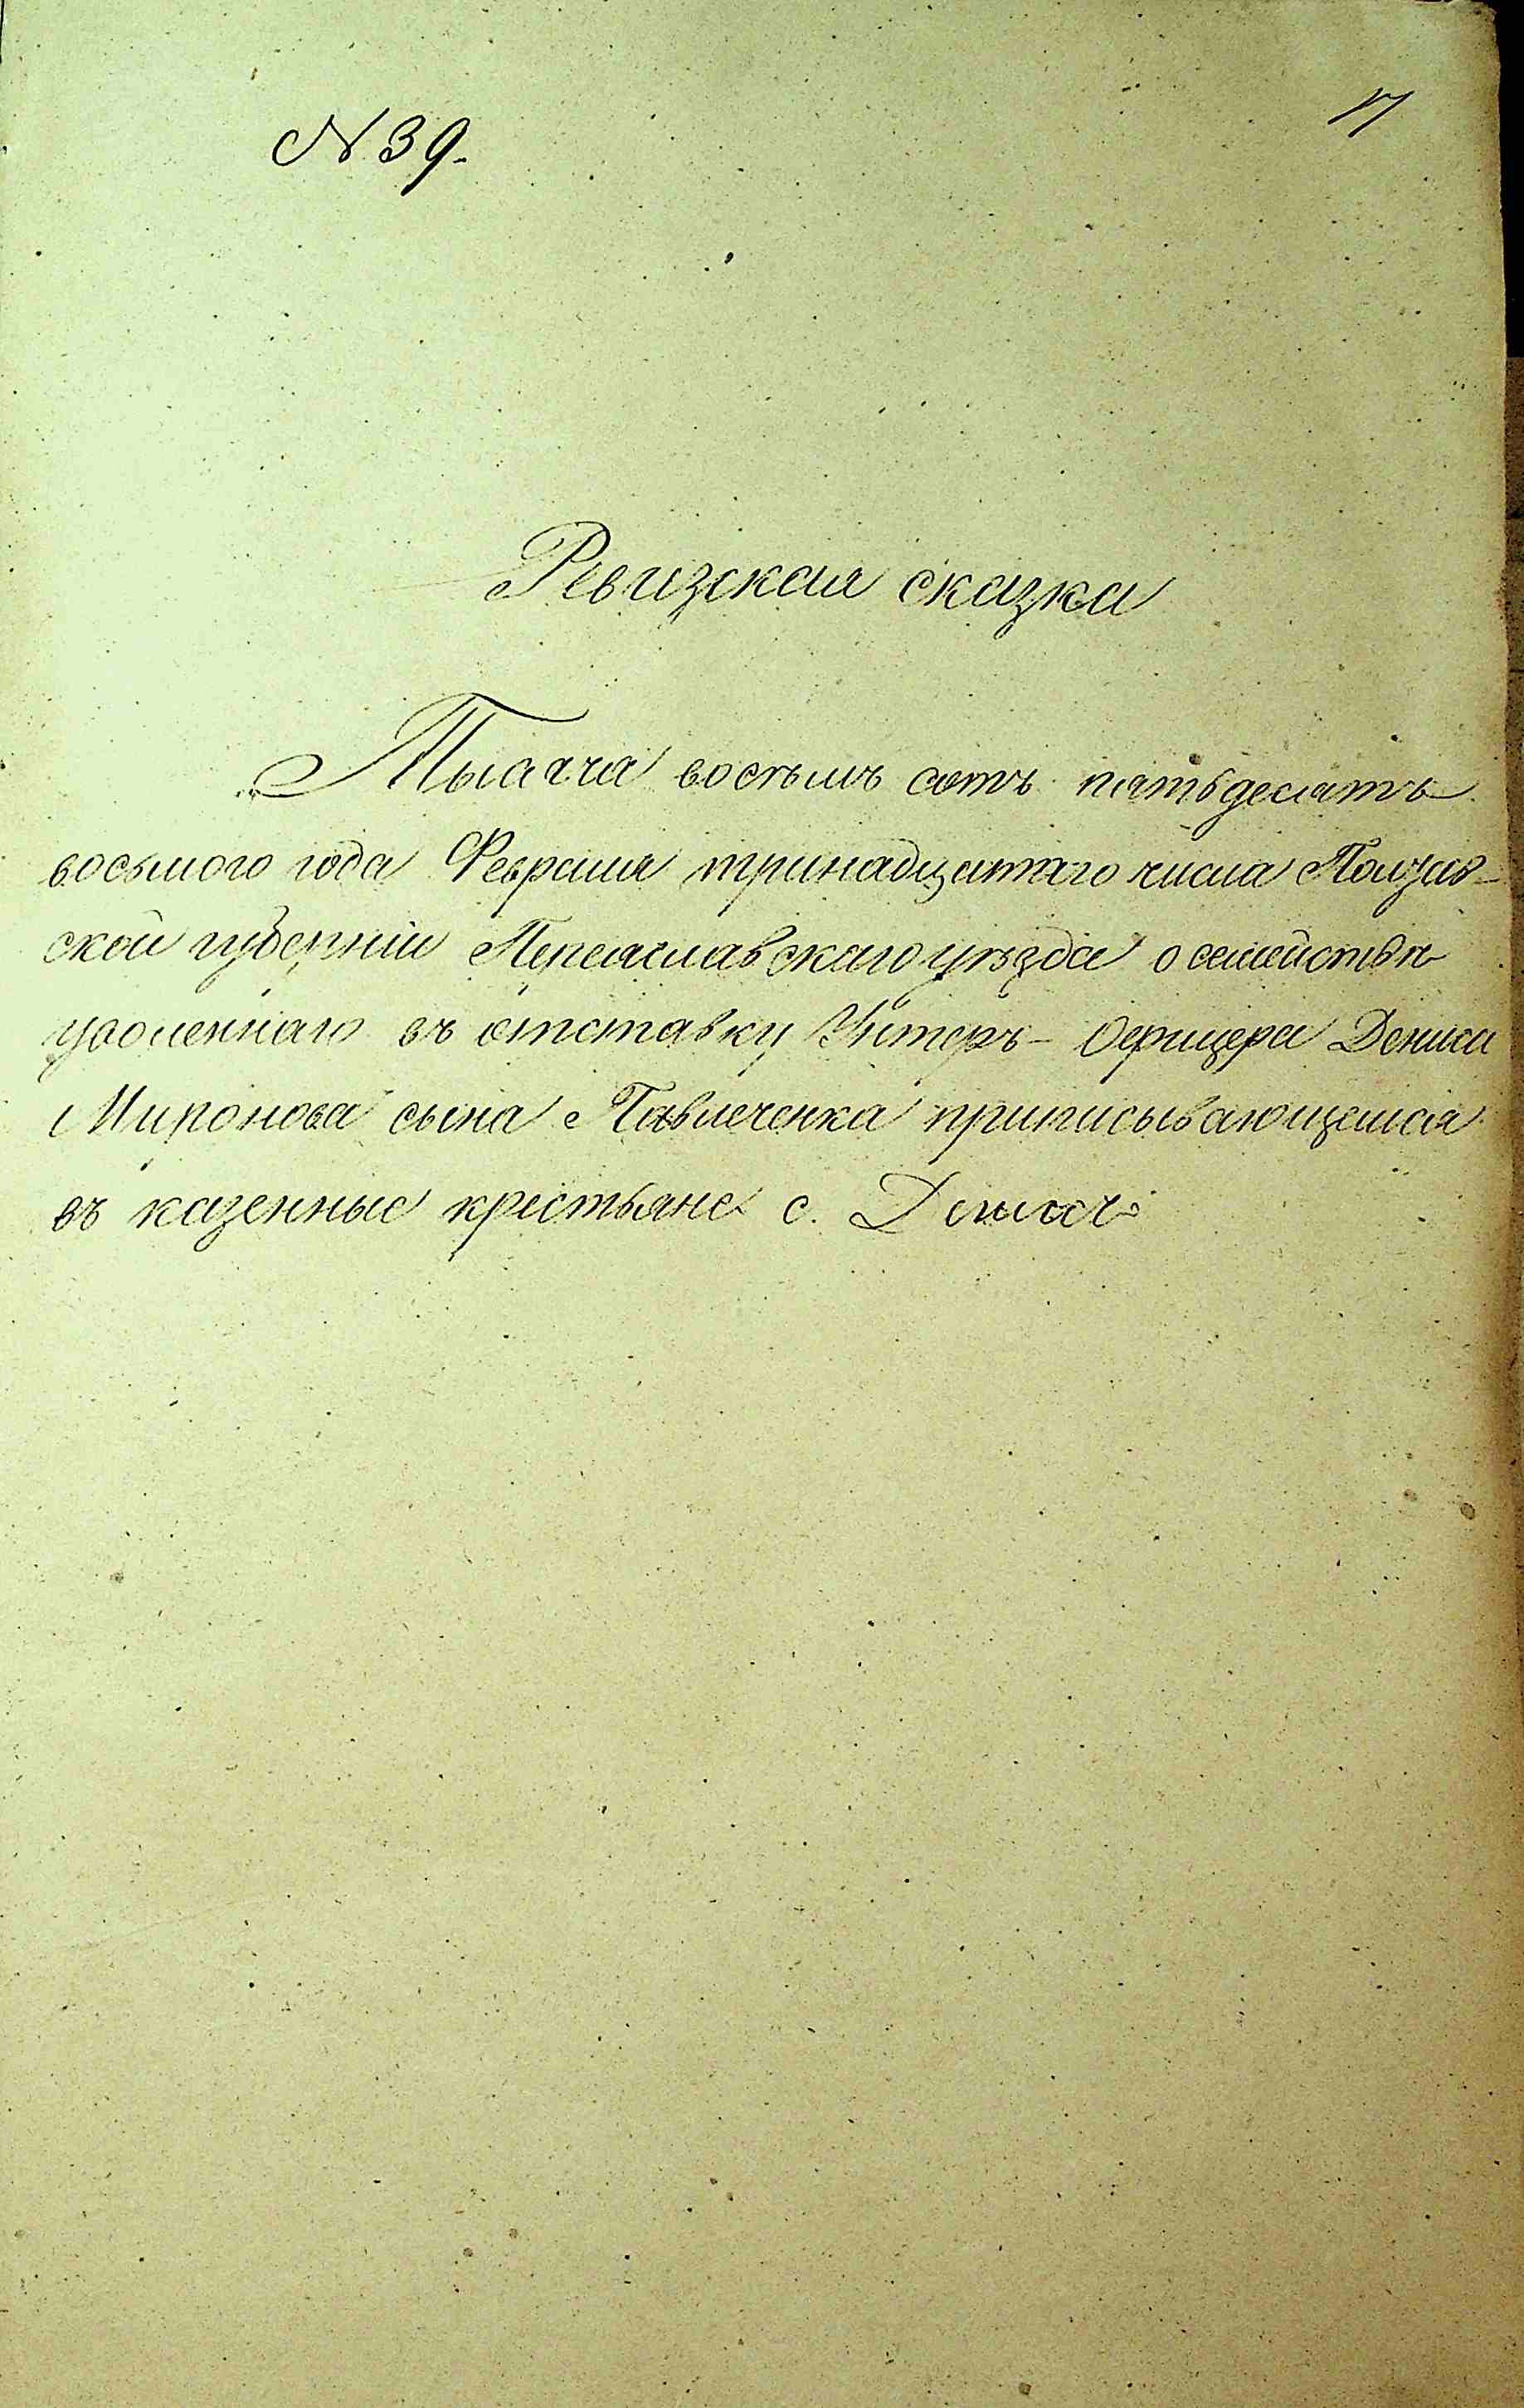 N 39.
Ревизская сказка
Тысяча восемь сотъ пятьдесятъ
восьмого года Февраля тринадцатаго числа Полтав-
ской губерніи Переяславскаго уѣзда о семействѣ
уволеннаго въ отставку Унтеръ-Офицера Дениса
Миронова сына Павленка приписывающемся
въ казенные крестьяне с.